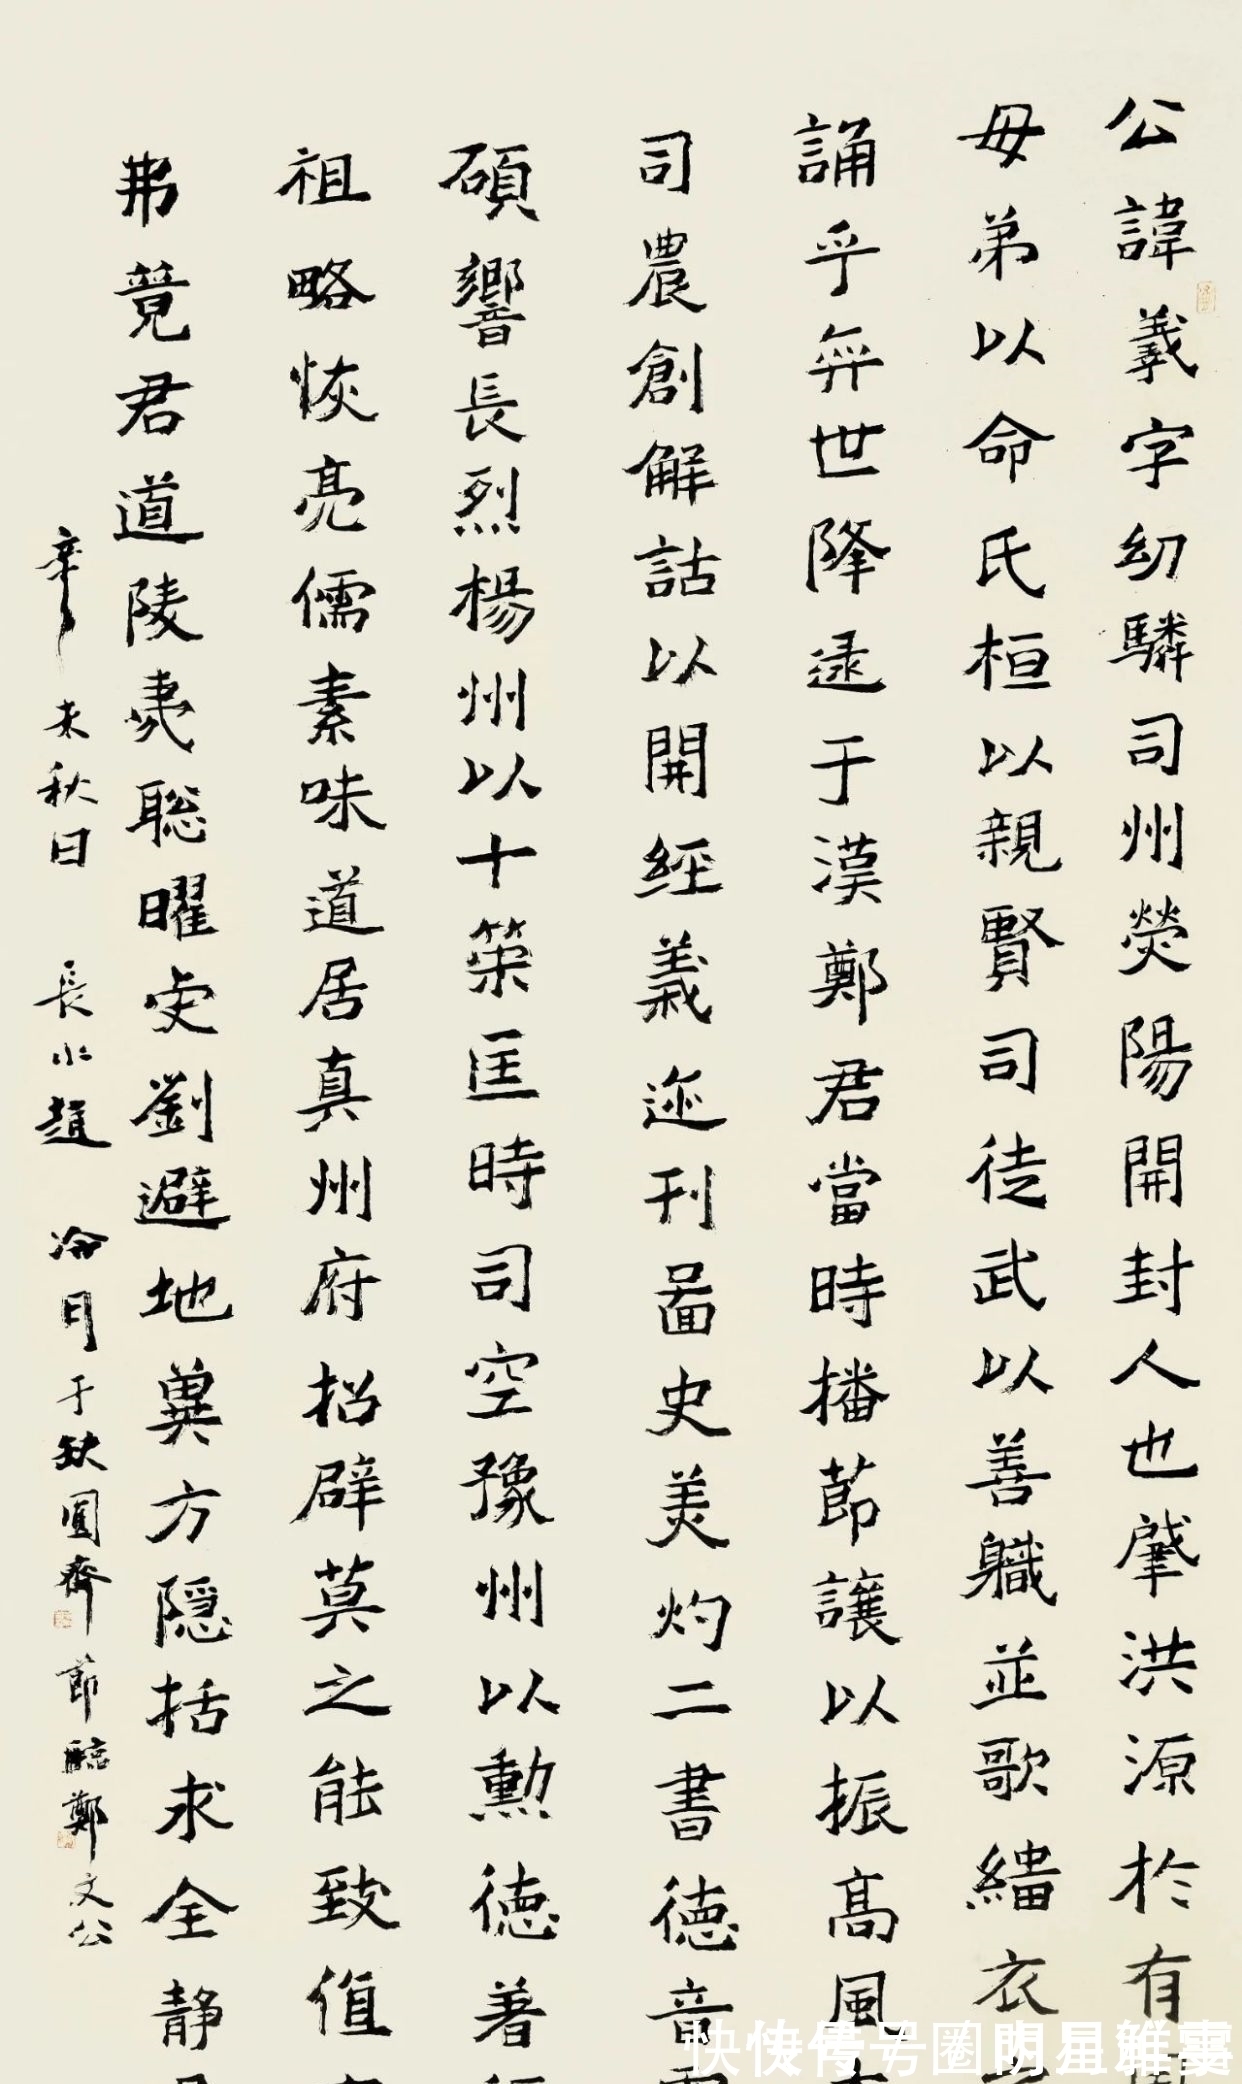 公諱羲字幼驎司州熒陽開封人也肇洪源於有
母弟以命氏桓以親賢司徒武以善職並歌緇衣
誦乎奕世降逯于漢鄭君當時播節讓以振高風
司農創解詁以開經義迹刊圖史美灼二書德音
碩響長烈楊州以十策匡時司空豫州以勳德著
祖略恢亮儒素味道居真州府招辟莫之能致值
弗竟君道陵夷聡曜虔劉避地冀方隱括求全静
辛未秋日 長水趙 冷月于缺圓齋 節臨鄭文公